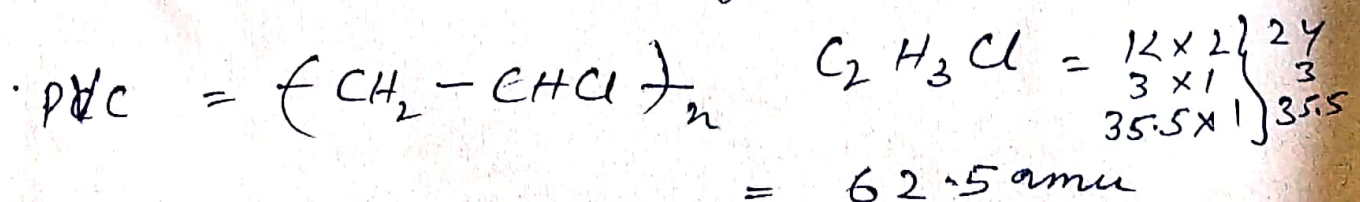 · PVC = -( CH₂ - CHCl )-ₙ C₂ H₃ Cl = 12 × 2 } 24
3 × 1 } 3
35.5 × 1 } 35.5
= 62.5 amu